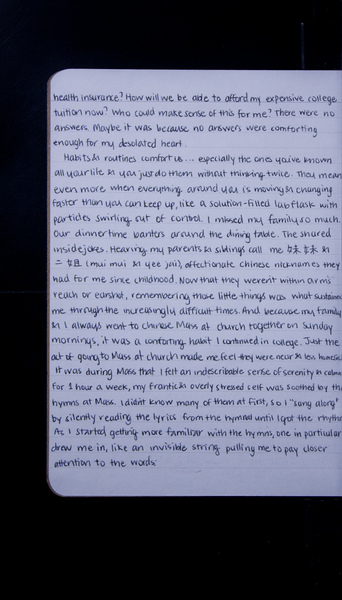 health insurance? How will we be able to afford my expensive college
tuition now? Who could make sense of this for me? There were no
answers. Maybe it was because no answers were comforting
enough for my desolated heart.
Habits & routines comfort us... especially the ones you've known
all your life & you just do them without thinking twice. They mean
even more when everything around you is moving & changing
faster than you can keep up, like a solution-filled lab flask with
particles swirling out of control. I missed my family so much.
Our dinnertime banters around the dining table. The shared
inside jokes. Hearing my parents & siblings call me 妹妹 &
二姐 (mui mui & yee jai), affectionate chinese nicknames they
had for me since childhood. Now that they weren't within arms
reach or earshot, remembering those little things was what sustained
me through the increasingly difficult times. And because my family
& I always went to chinese Mass at church together on Sunday
mornings, it was a comforting habit I continued in college. Just the
act of going to Mass at church made me feel they were near & less homesick
It was during Mass that I felt an indescribable sense of serenity & calm
For 1 hour a week, my frantic & overly stressed self was soothed by the
hymns at Mass. I didn't know many of them at first, so I "sang along"
by silently reading the lyrics from the hymnal until I got the rhythm
As I started getting more familiar with the hymns, one in particular
drew me in, like an invisible string pulling me to pay closer
attention to the words: